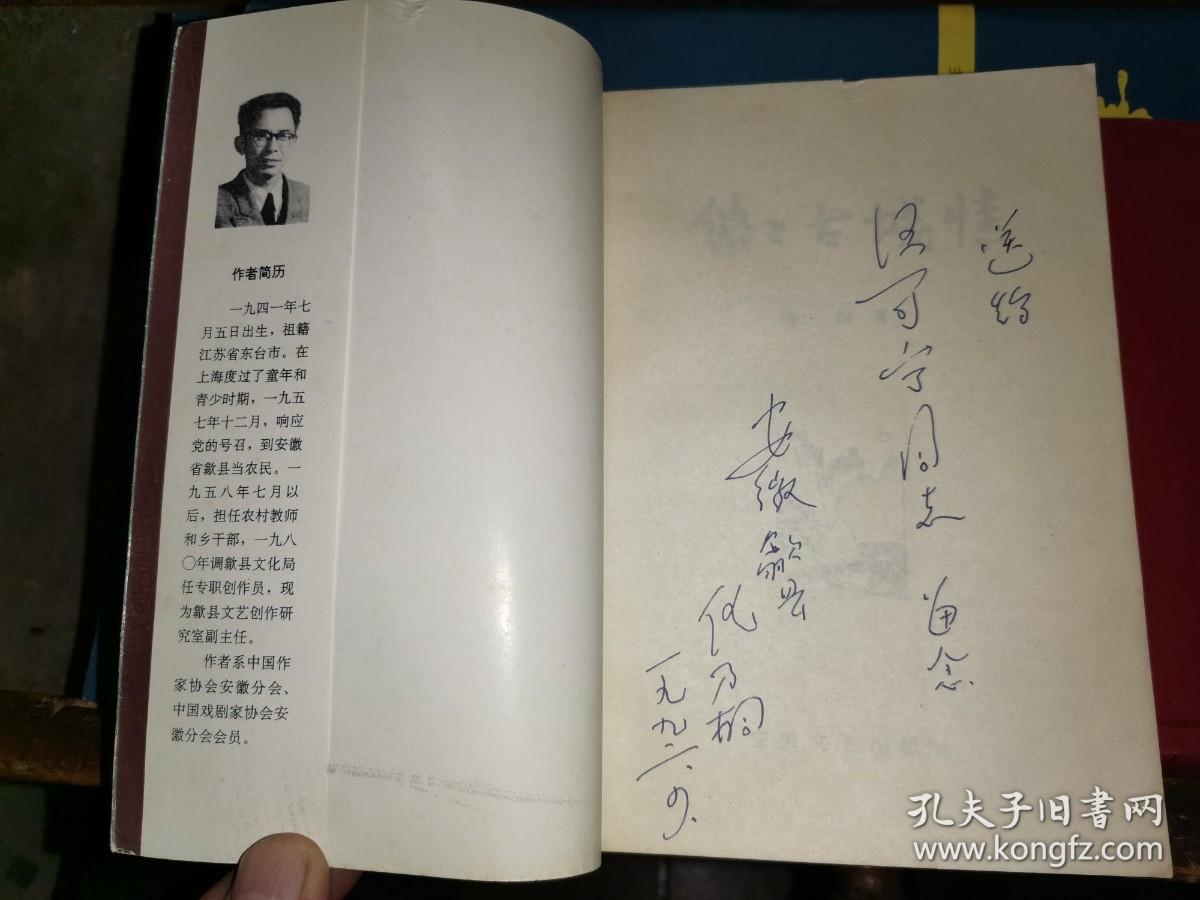 作者简历
一九四一年七
月五日出生，祖籍
江苏省东台市。在
上海度过了童年和
青少时期，一九五
七年十二月，响应
党的号召，到安徽
省歙县当农民。一
九五八年七月以
后，担任农村教师
和乡干部，一九八
〇年调歙县文化局
任专职创作员，现
为歙县文艺创作研
究室副主任。
作者系中国作
家协会安徽分会、
中国戏剧家协会安
徽分会会员。
送给
同志 留念
安徽歙县
乃桐
一九九二.
孔夫子旧书网
www.kongfz.com